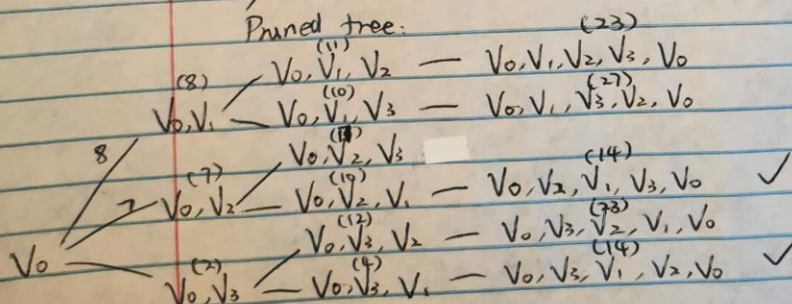 Pruned tree:
(11) (23)
V0, V1, V2 — V0, V1, V2, V3, V0
(8) (10) (27)
V0, V1 V0, V1, V3 — V0, V1, V3, V2, V0
8 V0, V2, V3
(7) (10) (14)
7 V0, V2 — V0, V2, V1 — V0, V2, V1, V3, V0 ✓
(12) (23)
V0, V3, V2 — V0, V3, V2, V1, V0
V0 (2) (4) (14)
V0, V3 — V0, V3, V1 — V0, V3, V1, V2, V0 ✓